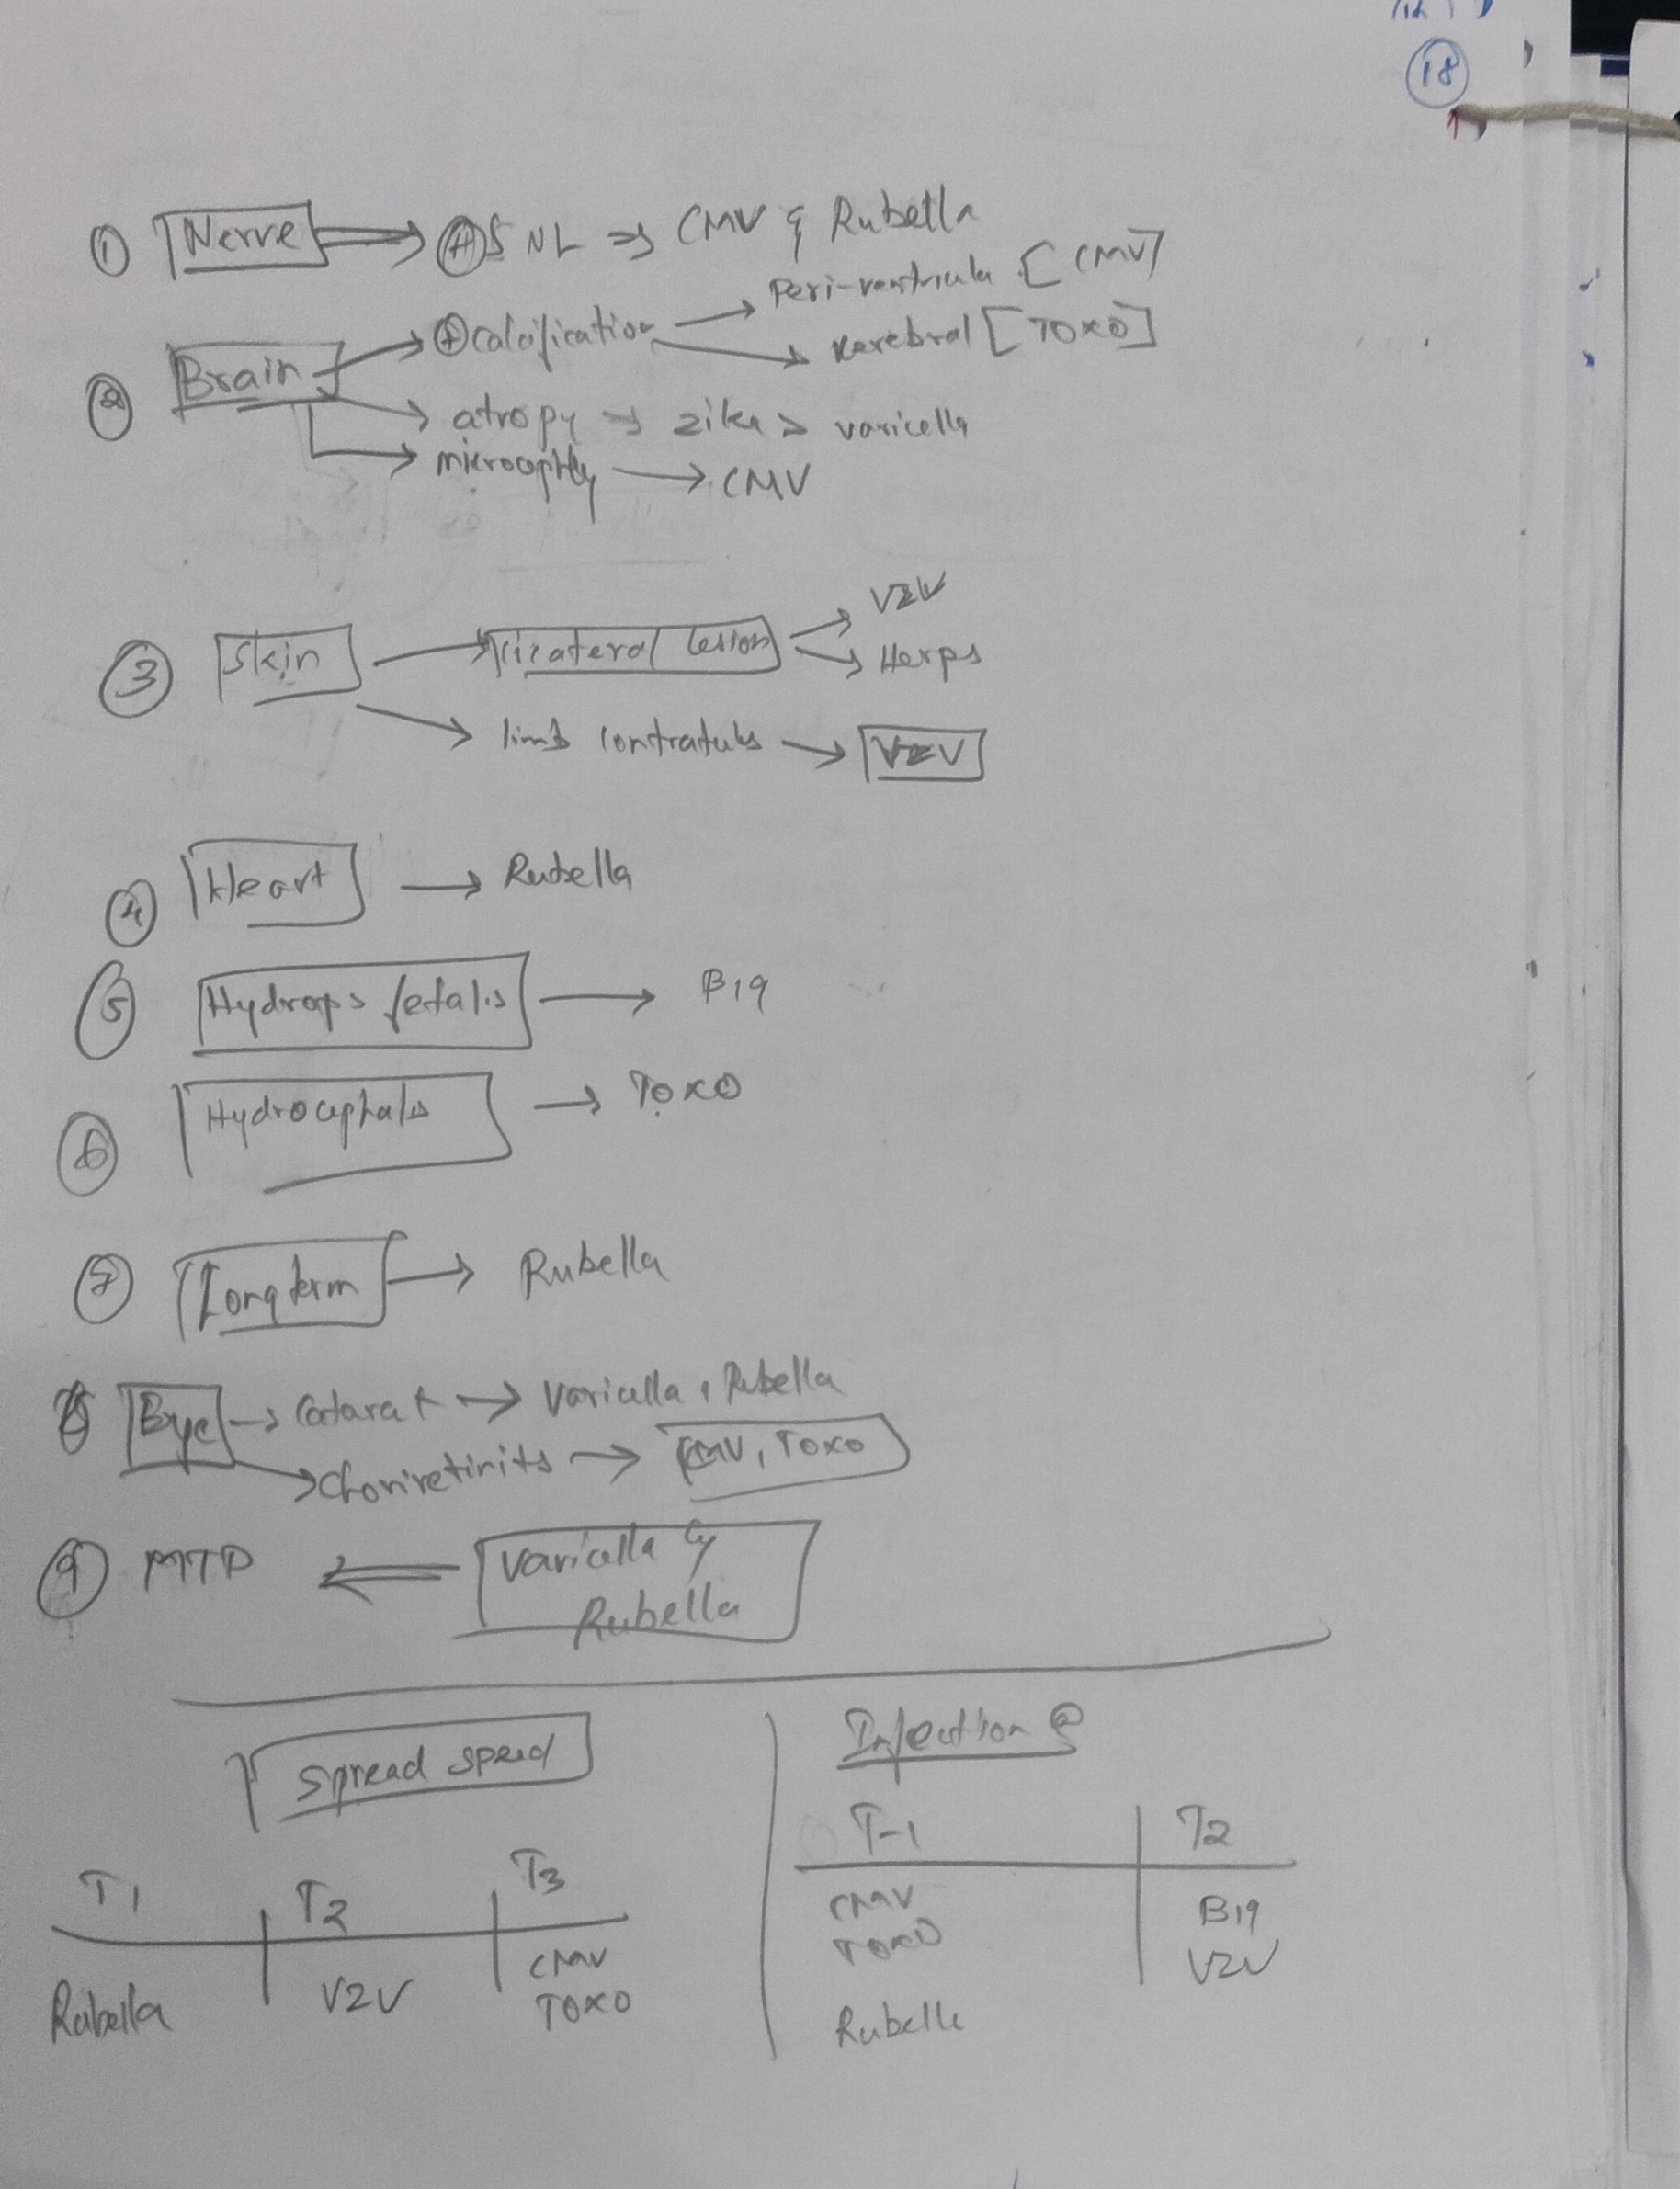 18
① Nerve ⇒ Ⓐ SNL ⇒ CMV & Rubella
② Brain → Ⓐ calcification → Peri-ventricula [CMV]
→ kerebral [TOXO]
→ atropy → zika > varicella
→ microcephly → CMV
③ Skin → Cicateral lesion → VZV
→ Herps
→ limb contratubs → VZV
④ Heart → Rubella
⑤ Hydrops fetalis → B19
⑥ Hydrocephals → TOXO
⑦ Long term → Rubella
⑧ Eye → Catarat → Varicella, Rubella
→ Choriretinits → CMV, Toxo
⑨ MTP ⇐ Varicella &
Rubella
Spread speed
T1 T2 T3
Rubella VZV CMV
TOXO
Infection @
T-1 T2
CMV B19
TOXO VZV
Rubelle